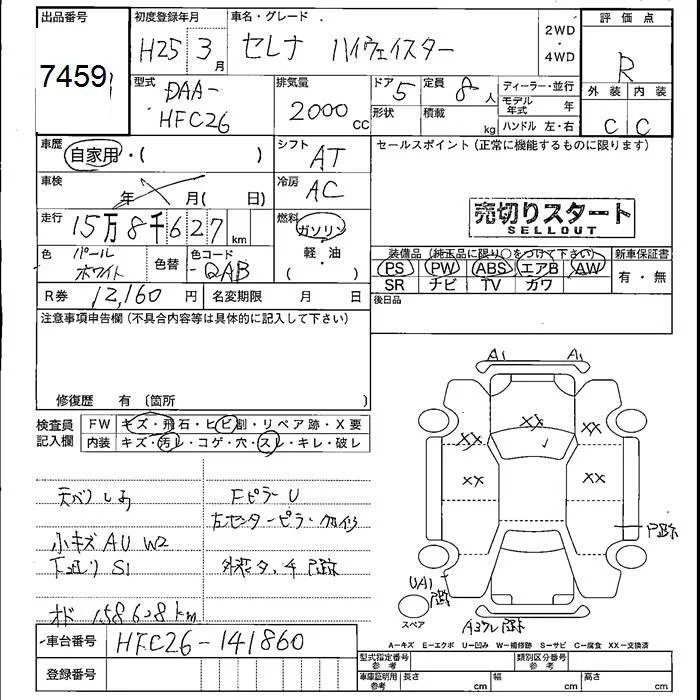 出品番号
7459
初度登録年月
H25 3月
車名・グレード
セレナ ハイウェイスター
2WD
・
4WD
評価点
R
外装 内装
C C
型式
DAA-
HFC26
排気量
2000cc
ドア
5
定員
8人
形状
積載
kg
ディーラー・並行
モデル年式 年
ハンドル 左・右
車歴
自家用・( )
シフト
AT
セールスポイント (正常に機能するものに限ります)
車検
年 月( 日)
冷房
AC
売切りスタート
SELLOUT
走行
15万8千627km
燃料
ガソリン
軽・油
( )
色
パール
ホワイト
色替
色コード
QAB
装備品 (純正品に限り○をつけて下さい)
新車保証書
PS PW ABS エアB AW
SR ナビ TV カワ
有・無
後日品
R券 12,160円
名変期限 月 日
注意事項申告欄(不具合内容等は具体的に記入して下さい)
修復歴 有 〔箇所 〕
検査員
記入欄
FW キズ・飛石・ヒビ割・リペア跡・X要
内装 キズ・汚レ・コゲ・穴・スレ・キレ・破レ
Fピラーu
左センターピラー
小キズ AU W2
S1
外装
158628km
A1 A1
XX
XX XX
XX XX
UA1
スペア
A=キズ E=エクボ U=凹み W=補修跡 S=サビ C=腐食 XX=交換済
車台番号
HFC26-141860
登録番号
型式指定番号
参考
類別区分番号
参考
車庫証明用
参考
長さ cm
幅 cm
高さ cm